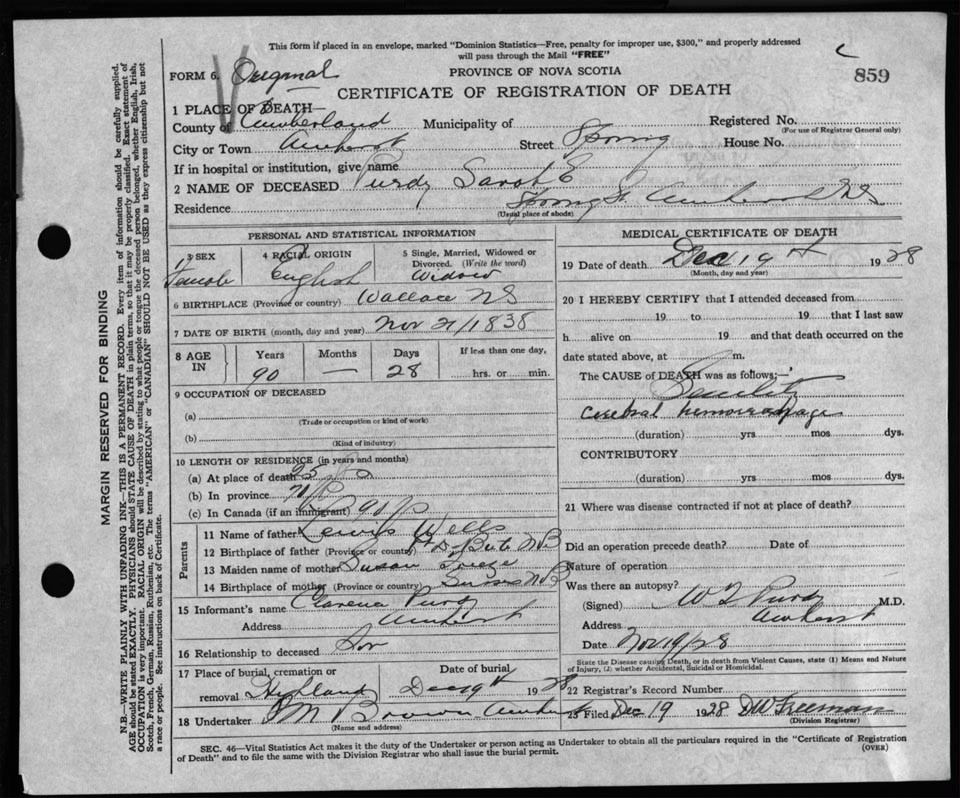 This form if placed in an envelope, marked "Dominion Statistics—Free, penalty for improper use, $300," and properly addressed
will pass through the Mail "FREE"
FORM 6. Original
PROVINCE OF NOVA SCOTIA
859
CERTIFICATE OF REGISTRATION OF DEATH
1 PLACE OF DEATH—
County of Cumberland Municipality of Registered No.
(For use of Registrar General only)
City or Town Amherst Street Spring House No.
If in hospital or institution, give name
2 NAME OF DECEASED Purdy Sarah E
Residence Spring St. Amherst NS
(Usual place of abode)
PERSONAL AND STATISTICAL INFORMATION
3 SEX 4 RACIAL ORIGIN 5 Single, Married, Widowed or Divorced. (Write the word)
Female English Widow
6 BIRTHPLACE (Province or country) Wallace NS
7 DATE OF BIRTH (month, day and year) Nov 21/1838
8 AGE IN Years Months Days If less than one day,
90 28 hrs. or min.
9 OCCUPATION OF DECEASED
(a)
(Trade or occupation or kind of work)
(b)
(Kind of industry)
10 LENGTH OF RESIDENCE (in years and months)
(a) At place of death 25
(b) In province
(c) In Canada (if an immigrant) 90
Parents
11 Name of father Lewis Wells
12 Birthplace of father (Province or country) NB
13 Maiden name of mother Susan
14 Birthplace of mother (Province or country) Sussex NB
15 Informant's name Clarence Purdy
Address Amherst
16 Relationship to deceased Son
17 Place of burial, cremation or removal Highland Date of burial Dec 19th 1928
18 Undertaker Brown Amherst
(Name and address)
MEDICAL CERTIFICATE OF DEATH
19 Date of death Dec 19th 1928
(Month, day and year)
20 I HEREBY CERTIFY that I attended deceased from
19 to 19 that I last saw
h alive on 19 and that death occurred on the
date stated above, at m.
The CAUSE of DEATH was as follows:—
Senility
Cerebral hemorrahage
(duration) yrs mos dys.
CONTRIBUTORY
(duration) yrs mos dys.
21 Where was disease contracted if not at place of death?
Did an operation precede death? Date of
Nature of operation
Was there an autopsy?
(Signed) W T Purdy M.D.
Address Amherst
Date Nov 19/28
State the Disease causing Death, or in death from Violent Causes, state (1) Means and Nature
of Injury, (2) whether Accidental, Suicidal or Homicidal.
22 Registrar's Record Number
23 Filed Dec 19 1928 DW Freeman
(Division Registrar)
SEC. 46—Vital Statistics Act makes it the duty of the Undertaker or person acting as Undertaker to obtain all the particulars required in the "Certificate of Registration
of Death" and to file the same with the Division Registrar who shall issue the burial permit.
(OVER)
MARGIN RESERVED FOR BINDING
N.B.—WRITE PLAINLY WITH UNFADING INK—THIS IS A PERMANENT RECORD. Every item of information should be carefully supplied.
AGE should be stated EXACTLY. PHYSICIANS should STATE CAUSE OF DEATH in plain terms, so that it may be properly classified. Exact statement of
OCCUPATION is very important. RACIAL ORIGIN will be described by stating to what people or tongue the deceased person belonged, whether English, Irish,
Scotch, French, German, Russian, Ruthenian, etc. The terms "AMERICAN" or "CANADIAN" SHOULD NOT BE USED as they express citizenship but not
a race or people. See instructions on back of Certificate.